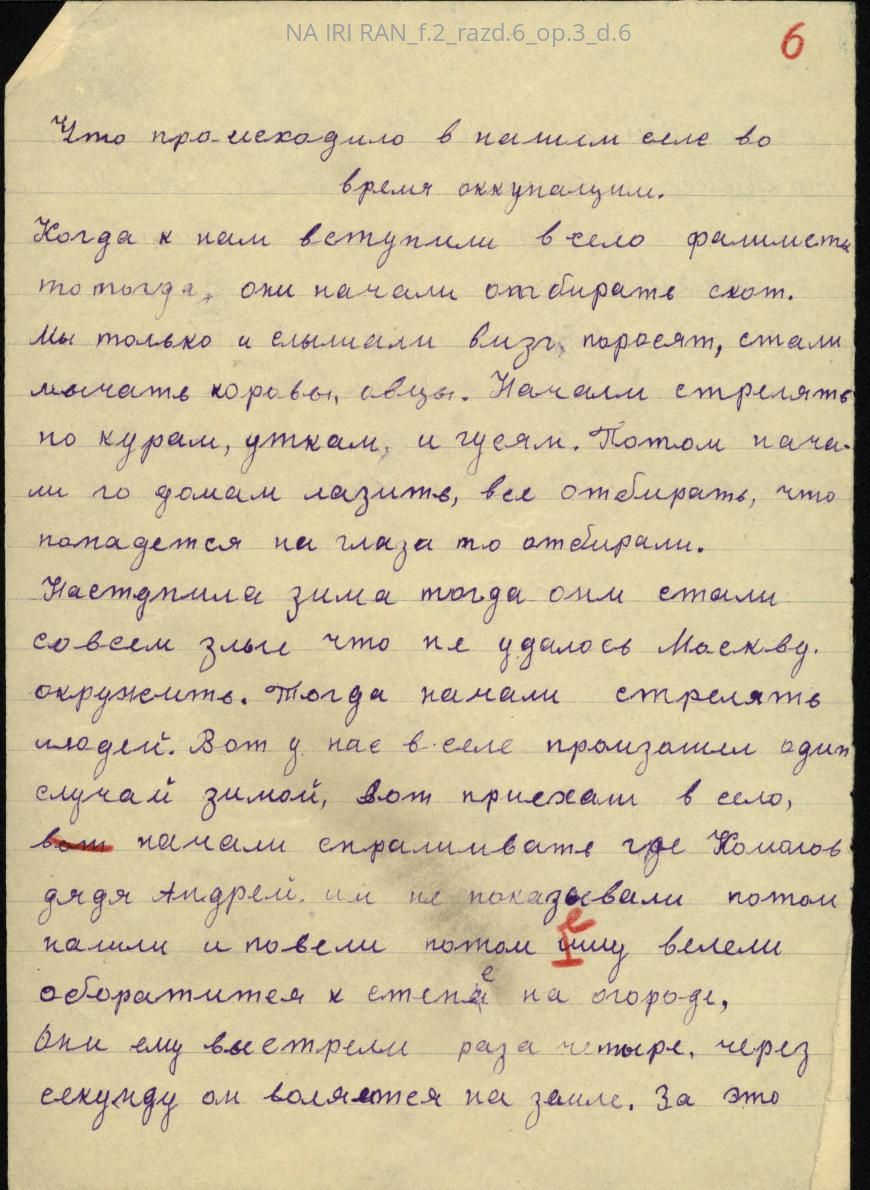 NA IRI RAN_f.2_razd.6_op.3_d.6
6
Что происходило в нашем селе во
время оккупации.
Когда к нам вступили в село фашисты
то тогда, они начали отбирать скот.
Мы только и слышали визг, поросят, стали
мычать коровы, овцы. Начали стрелять
по курам, уткам, и гусям. Потом нача-
ли по домам лазить, все отбирать, что
попадется на глаза то отбирали.
Наступила зима тогда они стали
совсем злые что не удалось Москву.
окружить. Тогда начали стрелять
людей. Вот у нас в селе произашел один
случай зимой, вот приехали в село,
вот начали спрашивать где
дядя Андрей. им не показывали потом
нашли и повели потом ему велели
оборатится к стене на огороде,
Они ему выстрели раза четыре. через
секунду он воляется на земле. За это